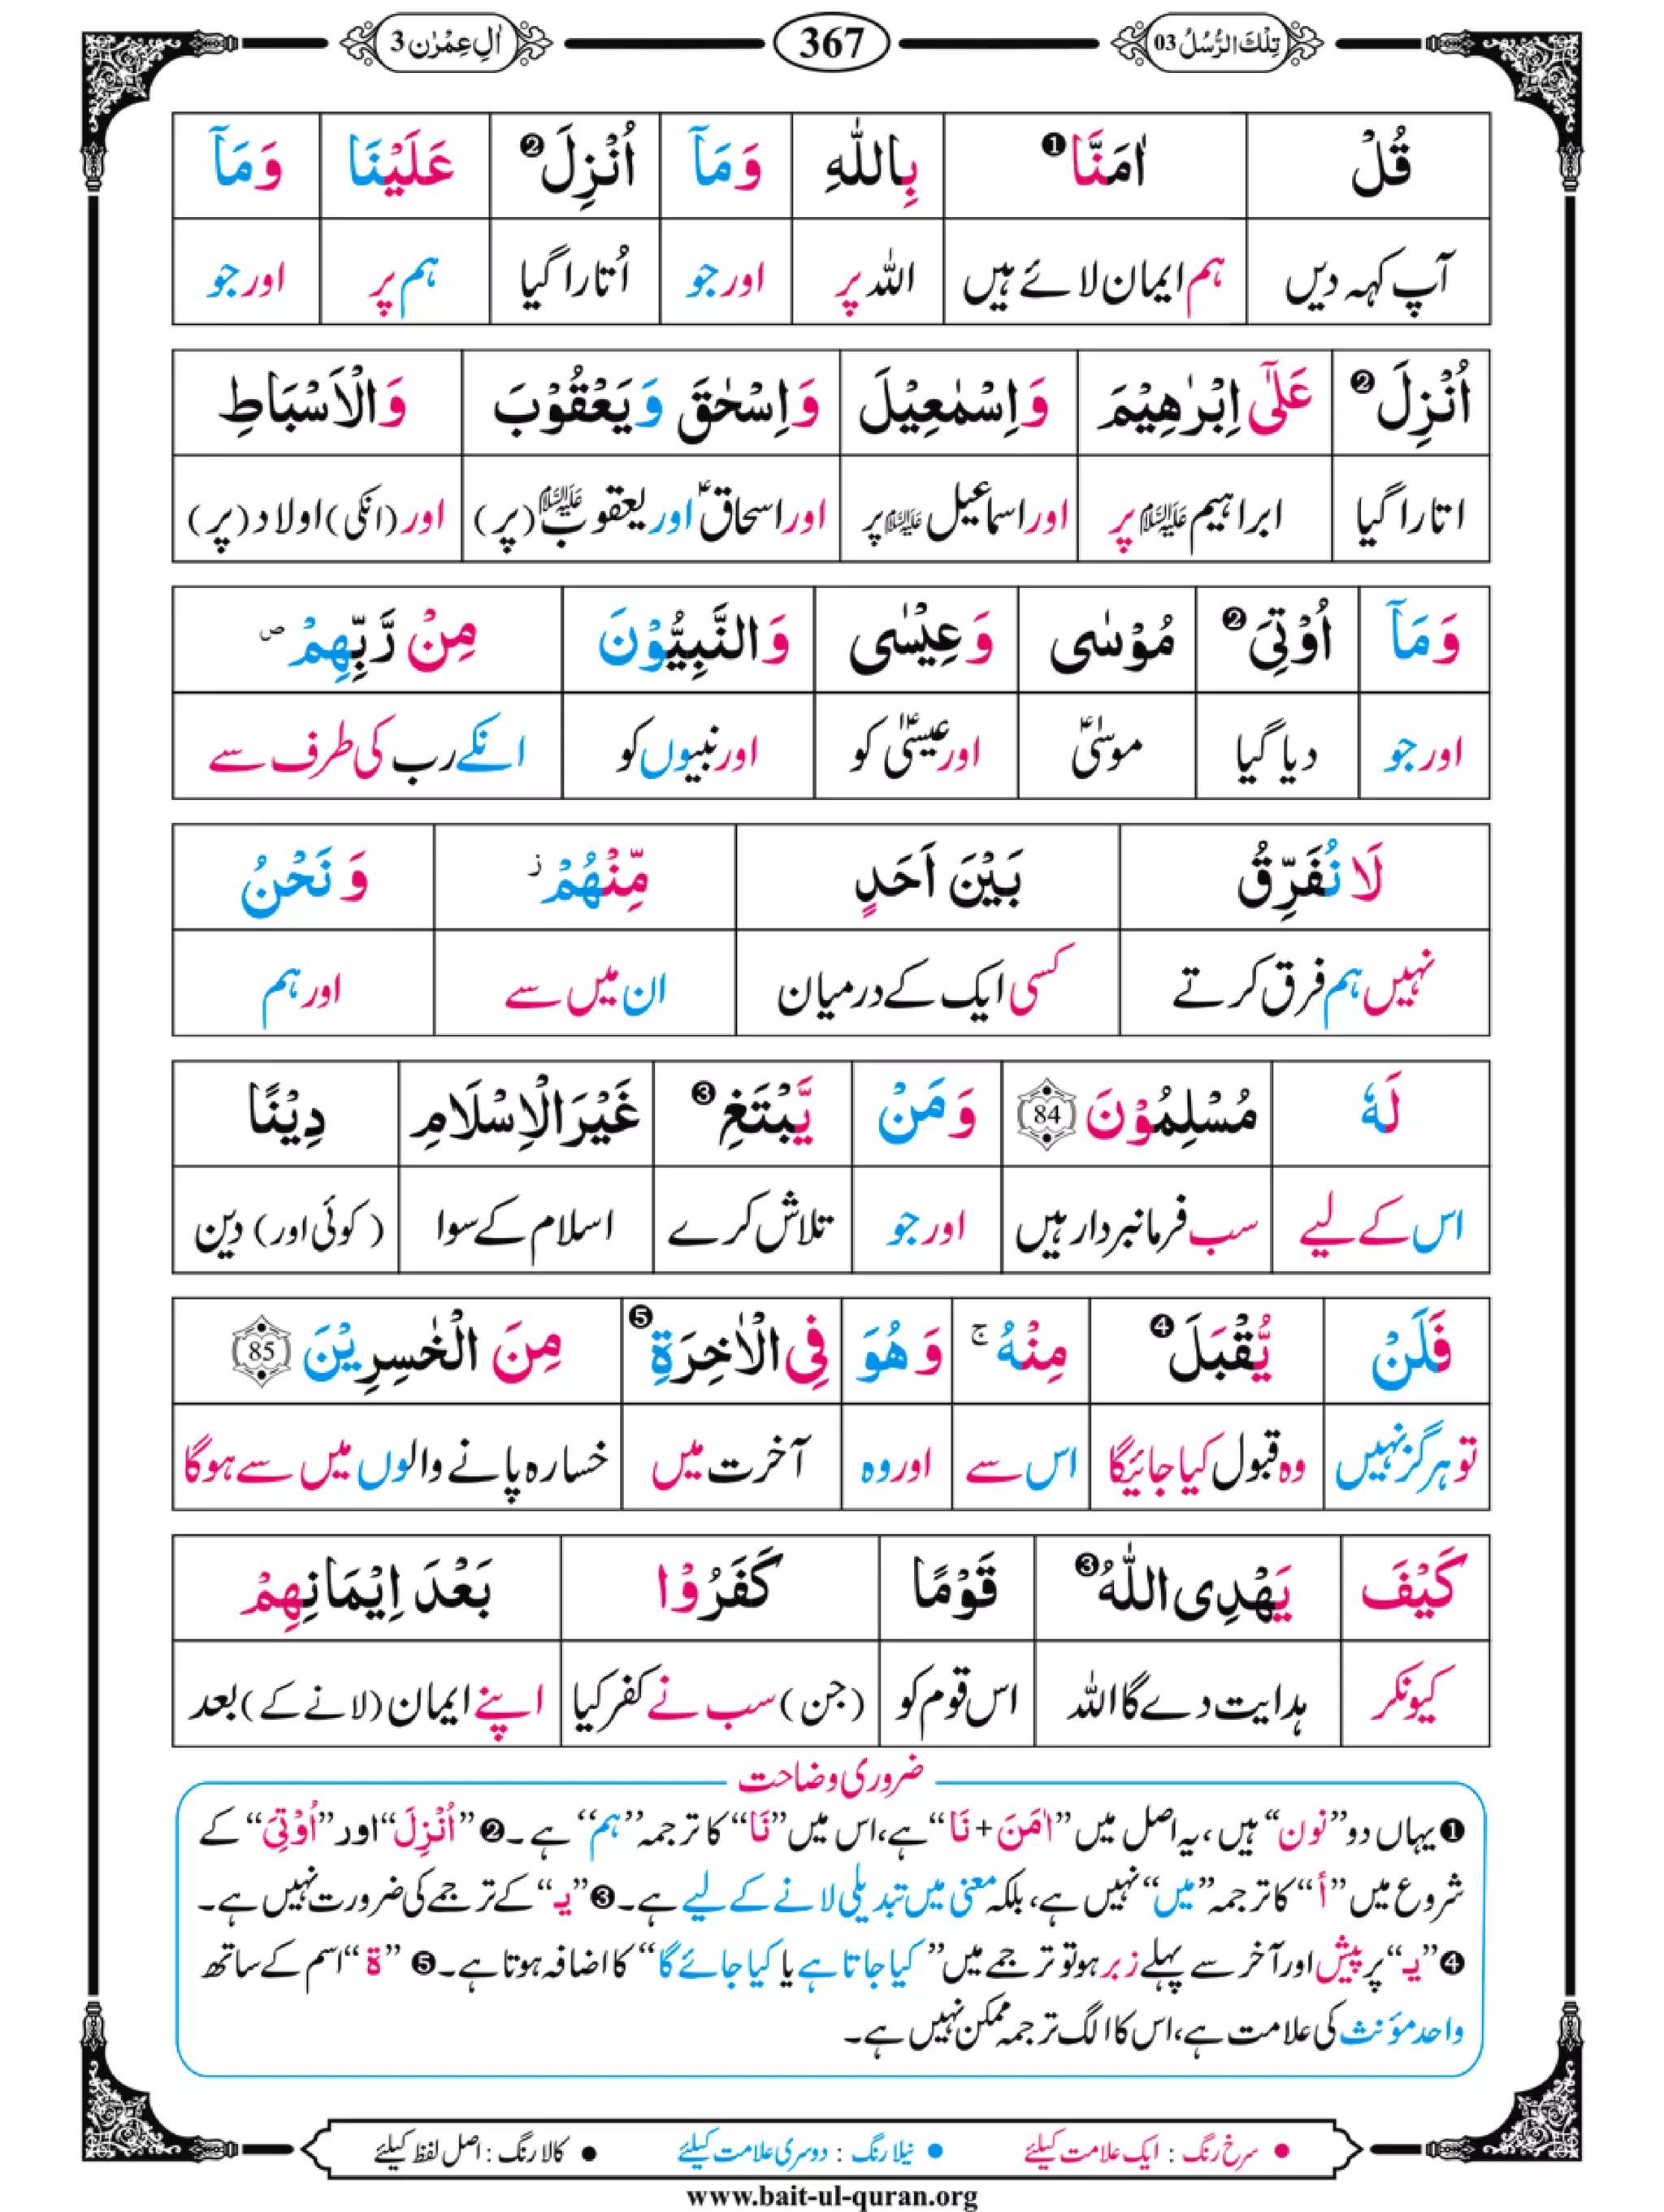 تِلْكَ الرُّسُلُ 03 367 اٰلِ عِمْرٰن 3
قُلْ اٰمَنَّا❶ بِاللّٰهِ وَمَآ اُنْزِلَ❷ عَلَيْنَا وَمَآ
آپ کہہ دیں ہم ایمان لائے ہیں اللہ پر اور جو اُتارا گیا ہم پر اور جو
اُنْزِلَ❷ عَلٰٓى اِبْرٰهِيْمَ وَاِسْمٰعِيْلَ وَاِسْحٰقَ وَيَعْقُوْبَ وَالْاَسْبَاطِ
اتارا گیا ابراہیم علیہ السلام پر اور اسماعیل علیہ السلام پر اور اسحاقؑ اور یعقوب علیہ السلام (پر) اور (انکی) اولاد (پر)
وَمَآ اُوْتِىَ❷ مُوْسٰى وَعِيْسٰى وَالنَّبِيُّوْنَ مِنْ رَّبِّهِمْ ۪
اور جو دیا گیا موسٰیؑ اور عیسٰیؑ کو اور نبیوں کو انکے رب کی طرف سے
لَا نُفَرِّقُ بَيْنَ اَحَدٍ مِّنْهُمْ ز وَنَحْنُ
نہیں ہم فرق کرتے کسی ایک کے درمیان ان میں سے اور ہم
لَهٗ مُسْلِمُوْنَ 84 وَمَنْ يَّبْتَغِ❸ غَيْرَ الْاِسْلَامِ دِيْنًا
اس کے لیے سب فرمانبردار ہیں اور جو تلاش کرے اسلام کے سوا (کوئی اور) دین
فَلَنْ يُّقْبَلَ❹ مِنْهُ ۚ وَهُوَ فِى الْاٰخِرَةِ❺ مِنَ الْخٰسِرِيْنَ 85
تو ہرگز نہیں وہ قبول کیا جائیگا اس سے اور وہ آخرت میں خسارہ پانے والوں میں سے ہوگا
كَيْفَ يَهْدِى اللّٰهُ❸ قَوْمًا كَفَرُوْا بَعْدَ اِيْمَانِهِمْ
کیونکر ہدایت دے گا اللہ اس قوم کو (جن) سب نے کفر کیا اپنے ایمان (لانے کے) بعد
ضروری وضاحت
❶ یہاں دو ”نون“ ہیں، یہ اصل میں ”اٰمَنَ + نَا“ ہے، اس میں ”نَا“ کا ترجمہ ”ہم“ ہے۔ ❷ ”اُنْزِلَ“ اور ”اُوْتِىَ“ کے
شروع میں ”أ“ کا ترجمہ ”میں“ نہیں ہے، بلکہ معنی میں تبدیلی لانے کے لیے ہے۔ ❸ ”یـ“ کے ترجمے کی ضرورت نہیں ہے۔
❹ ”یـ“ پر پیش اور آخر سے پہلے زبر ہو تو ترجمے میں ”کیا جاتا ہے یا کیا جائے گا“ کا اضافہ ہوتا ہے۔ ❺ ”ة“ اسم کے ساتھ
واحد مؤنث کی علامت ہے، اس کا الگ ترجمہ ممکن نہیں ہے۔
● سرخ رنگ : ایک علامت کیلئے ● نیلا رنگ : دوسری علامت کیلئے ● کالا رنگ : اصل لفظ کیلئے
www.bait-ul-quran.org